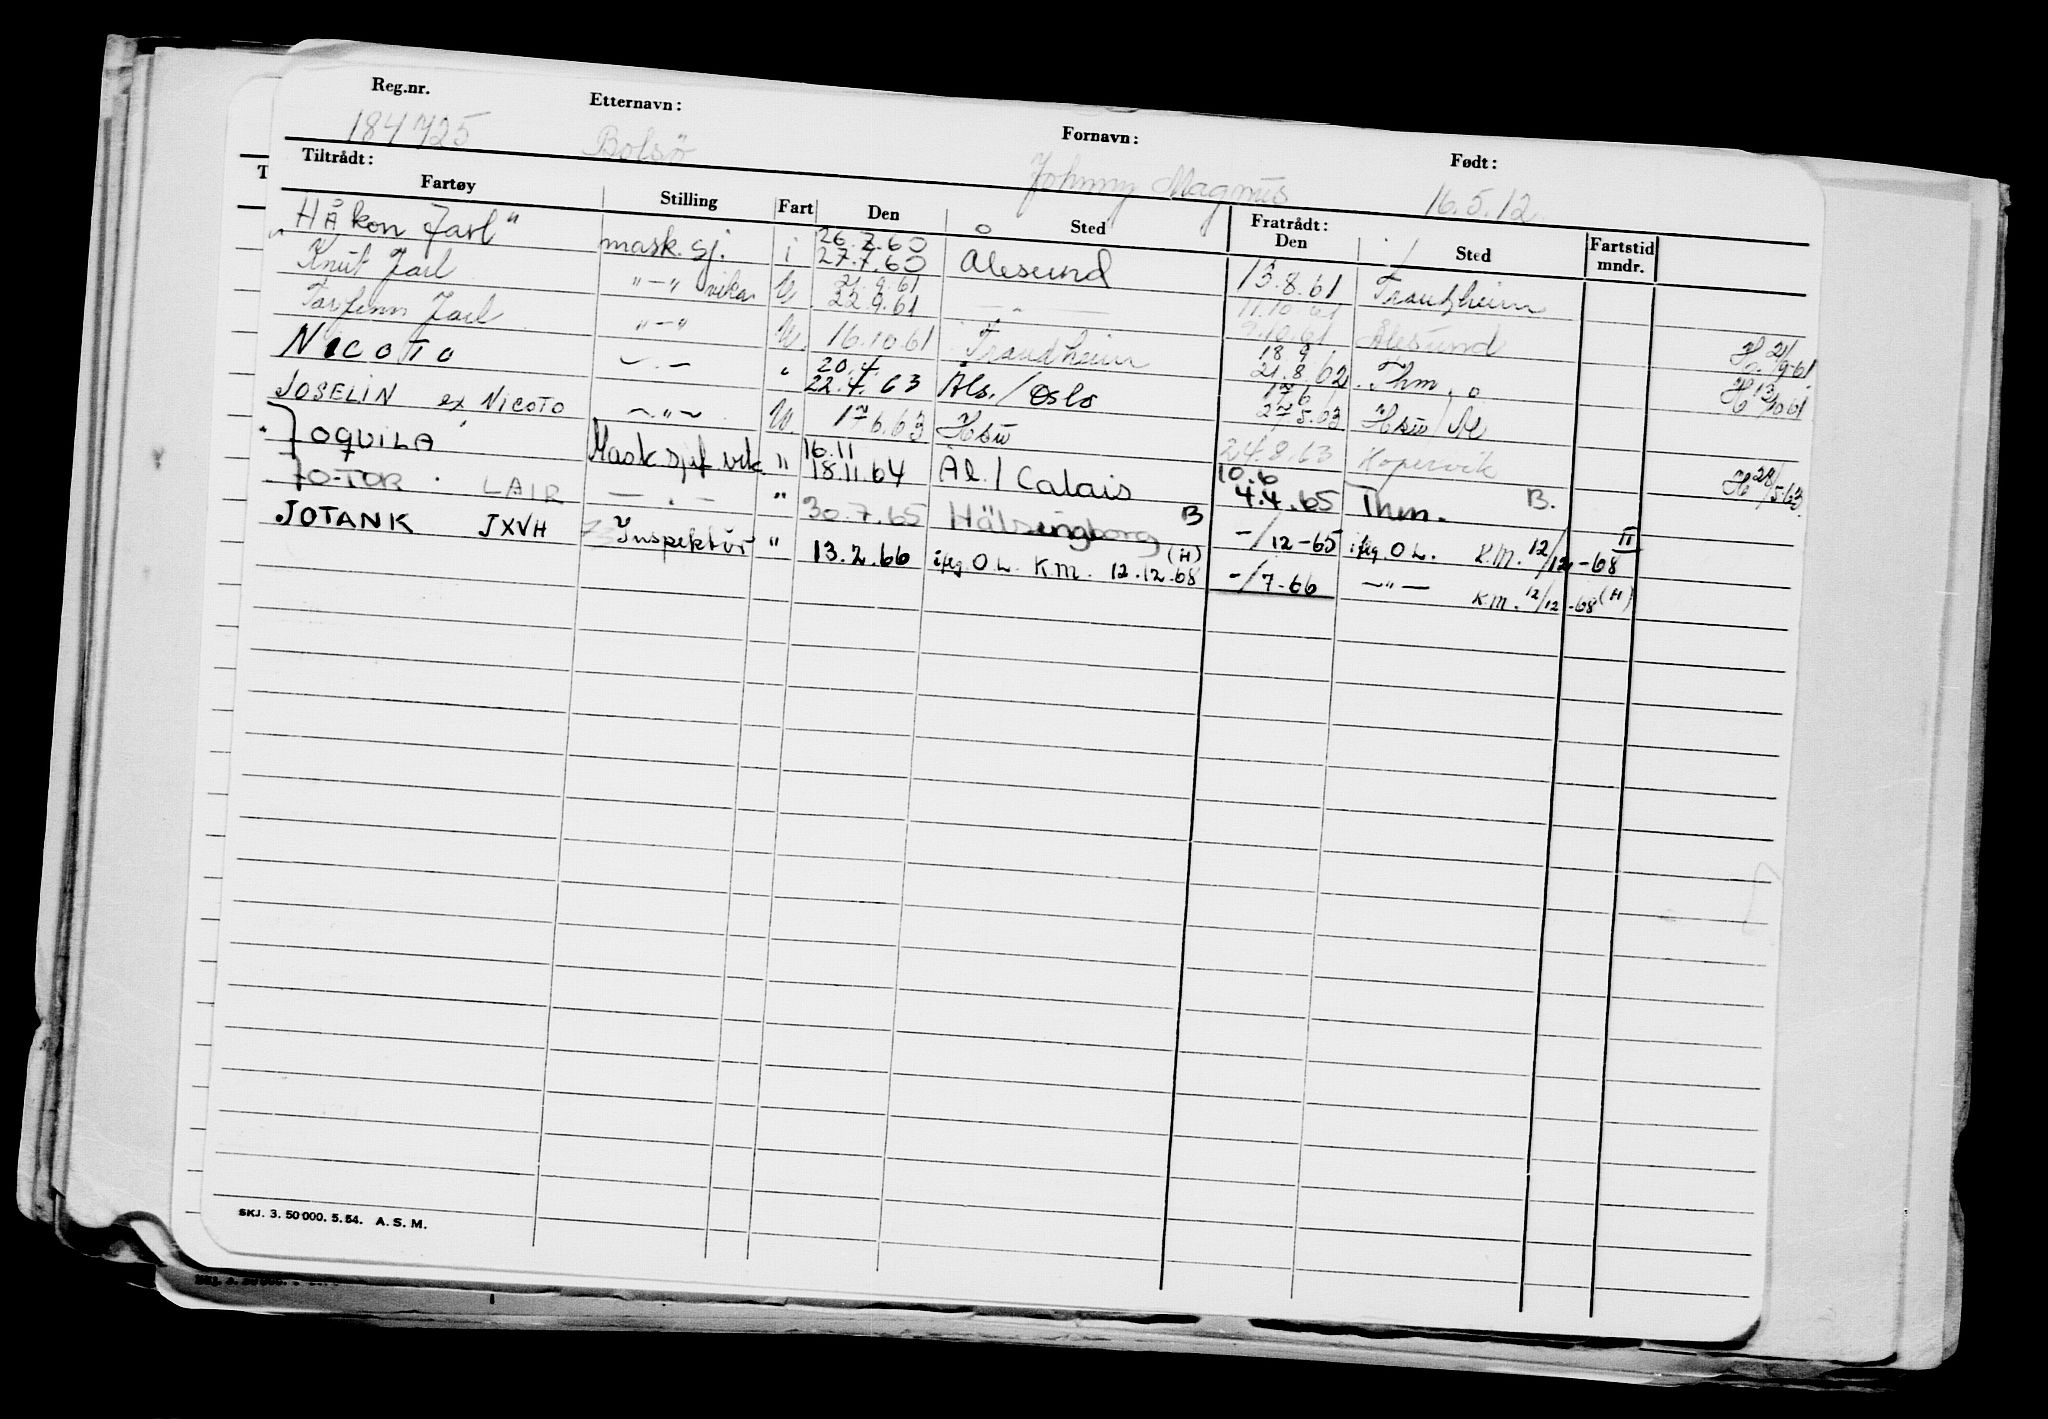 Reg.nr. Etternavn: Fornavn: Født:
184725 Bolsö Johnny Magnus 16.5.12
Tiltrådt: Fratrådt:
Fartøy Stilling Fart Den Sted Den Sted Fartstid mndr.
Håkon Jarl" mask.sj. i 26.7.60 27.7.60 Ålesund 13.8.61 Trondheim
Knut Jarl "—" vikar U 21.9.61 22.9.61 — " — 11.10.61 9.10.61 Ålesund H 21/9-61
Torfinn Jarl "—" U. 16.10.61 Trondheim 18.9 21.8.62 Thm. H 13/10 61
NICOTO —.— " 20.4. 22.4.63 Åls./Oslo 17.6 27.5.63 Hsü/Ål
JOSELIN ex NICOTO —"— U. 17.6.63 Hsü 24.8.63 Kopervik H 28/5-63
JOQUILA Mask.sjef vik. " 16.11 18.11.64 Ål./Calais 10.6 4.4.65 Thm. B.
JO-TOR. LAIR —.— " 30.7.65 Hälsingborg B -/12-65 iflg. O L. K.M. 12/12-68 H
JOTANK JXVH Inspektör " 13.2.66 ifлg. O L. K.M. 12.12.68 (H) -/7-66 —"— K.M. 12/12-68 (H)
SKJ. 3. 50 000. 5. 54. A. S. M.